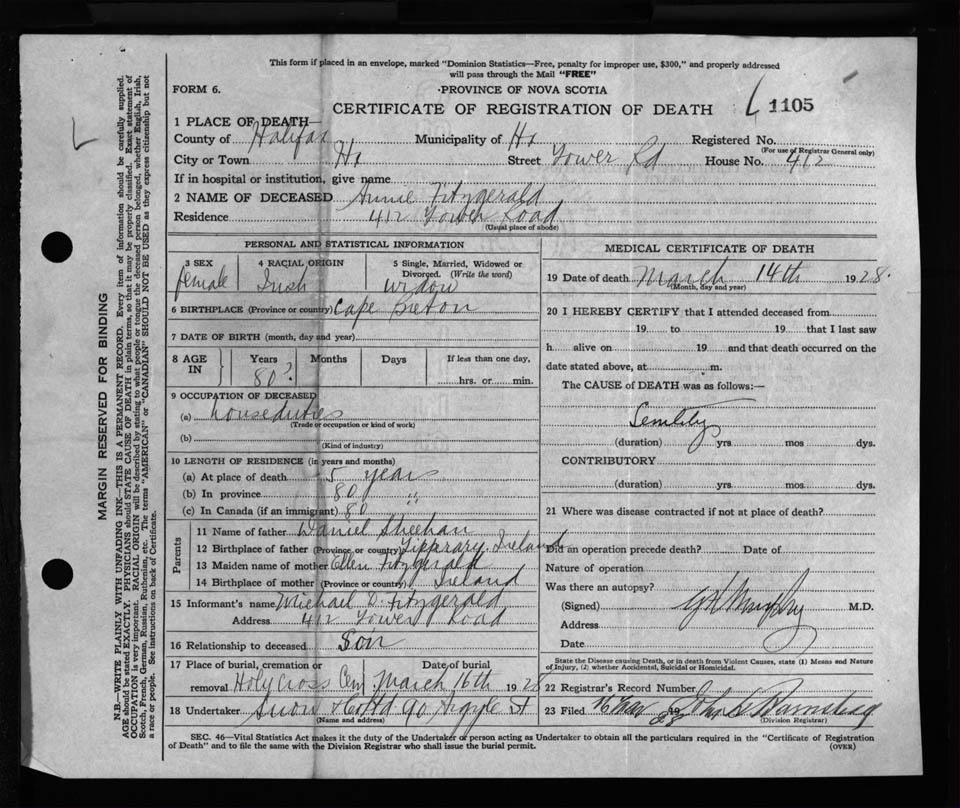 This form if placed in an envelope, marked "Dominion Statistics—Free, penalty for improper use, $300," and properly addressed
will pass through the Mail "FREE"
FORM 6.
PROVINCE OF NOVA SCOTIA
CERTIFICATE OF REGISTRATION OF DEATH
L 1105
1 PLACE OF DEATH—
County of Halifax Municipality of Hx Registered No.
(For use of Registrar General only)
City or Town Hx Street Tower Rd House No. 412
If in hospital or institution, give name
2 NAME OF DECEASED Annie Fitzgerald
Residence 412 Tower Road
(Usual place of abode)
PERSONAL AND STATISTICAL INFORMATION
3 SEX 4 RACIAL ORIGIN 5 Single, Married, Widowed or
Divorced. (Write the word)
female Irish widow
6 BIRTHPLACE (Province or country) Cape Breton
7 DATE OF BIRTH (month, day and year)
8 AGE IN Years Months Days If less than one day,
80? hrs. or min.
9 OCCUPATION OF DECEASED
(a) houseduties
(Trade or occupation or kind of work)
(b)
(Kind of industry)
10 LENGTH OF RESIDENCE (in years and months)
(a) At place of death 5 year
(b) In province 80 "
(c) In Canada (if an immigrant) 80
Parents
11 Name of father Daniel Sheehan
12 Birthplace of father (Province or country) Tipperary Ireland
13 Maiden name of mother Ellen Fitzgerald
14 Birthplace of mother (Province or country) Ireland
15 Informant's name Michael D. Fitzgerald
Address 412 Tower Road
16 Relationship to deceased Son
17 Place of burial, cremation or Date of burial
removal Holy Cross Cem March 16th 1928
18 Undertaker Snow & Co Ltd 90 Argyle St
(Name and address)
MEDICAL CERTIFICATE OF DEATH
19 Date of death March 14th 1928.
(Month, day and year)
20 I HEREBY CERTIFY that I attended deceased from
19 to 19 that I last saw
h alive on 19 and that death occurred on the
date stated above, at m.
The CAUSE of DEATH was as follows:—
Senility
(duration) yrs mos dys.
CONTRIBUTORY
(duration) yrs. mos. dys.
21 Where was disease contracted if not at place of death?
Did an operation precede death? Date of
Nature of operation
Was there an autopsy?
(Signed) Murphy M.D.
Address
Date
State the Disease causing Death, or in death from Violent Causes, state (1) Means and Nature
of Injury, (2) whether Accidental, Suicidal or Homicidal.
22 Registrar's Record Number
23 Filed 16 19
(Division Registrar)
SEC. 46—Vital Statistics Act makes it the duty of the Undertaker or person acting as Undertaker to obtain all the particulars required in the "Certificate of Registration
of Death" and to file the same with the Division Registrar who shall issue the burial permit.
(OVER)
MARGIN RESERVED FOR BINDING
N.B.—WRITE PLAINLY WITH UNFADING INK—THIS IS A PERMANENT RECORD. Every item of information should be carefully supplied.
AGE should be stated EXACTLY. PHYSICIANS should STATE CAUSE OF DEATH in plain terms, so that it may be properly classified. Exact statement of
OCCUPATION is very important. RACIAL ORIGIN will be described by stating to what people or tongue the deceased person belonged, whether English, Irish,
Scotch, French, German, Russian, Ruthenian, etc. The terms "AMERICAN" or "CANADIAN" SHOULD NOT BE USED as they express citizenship but not
a race or people. See instructions on back of Certificate.